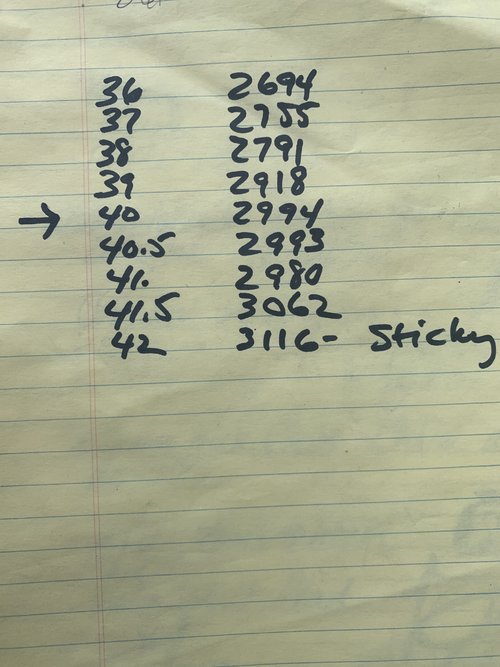 36 2694
37 2755
38 2791
39 2918
→ 40 2994
40.5 2993
41. 2980
41.5 3062
42 3116- Sticky